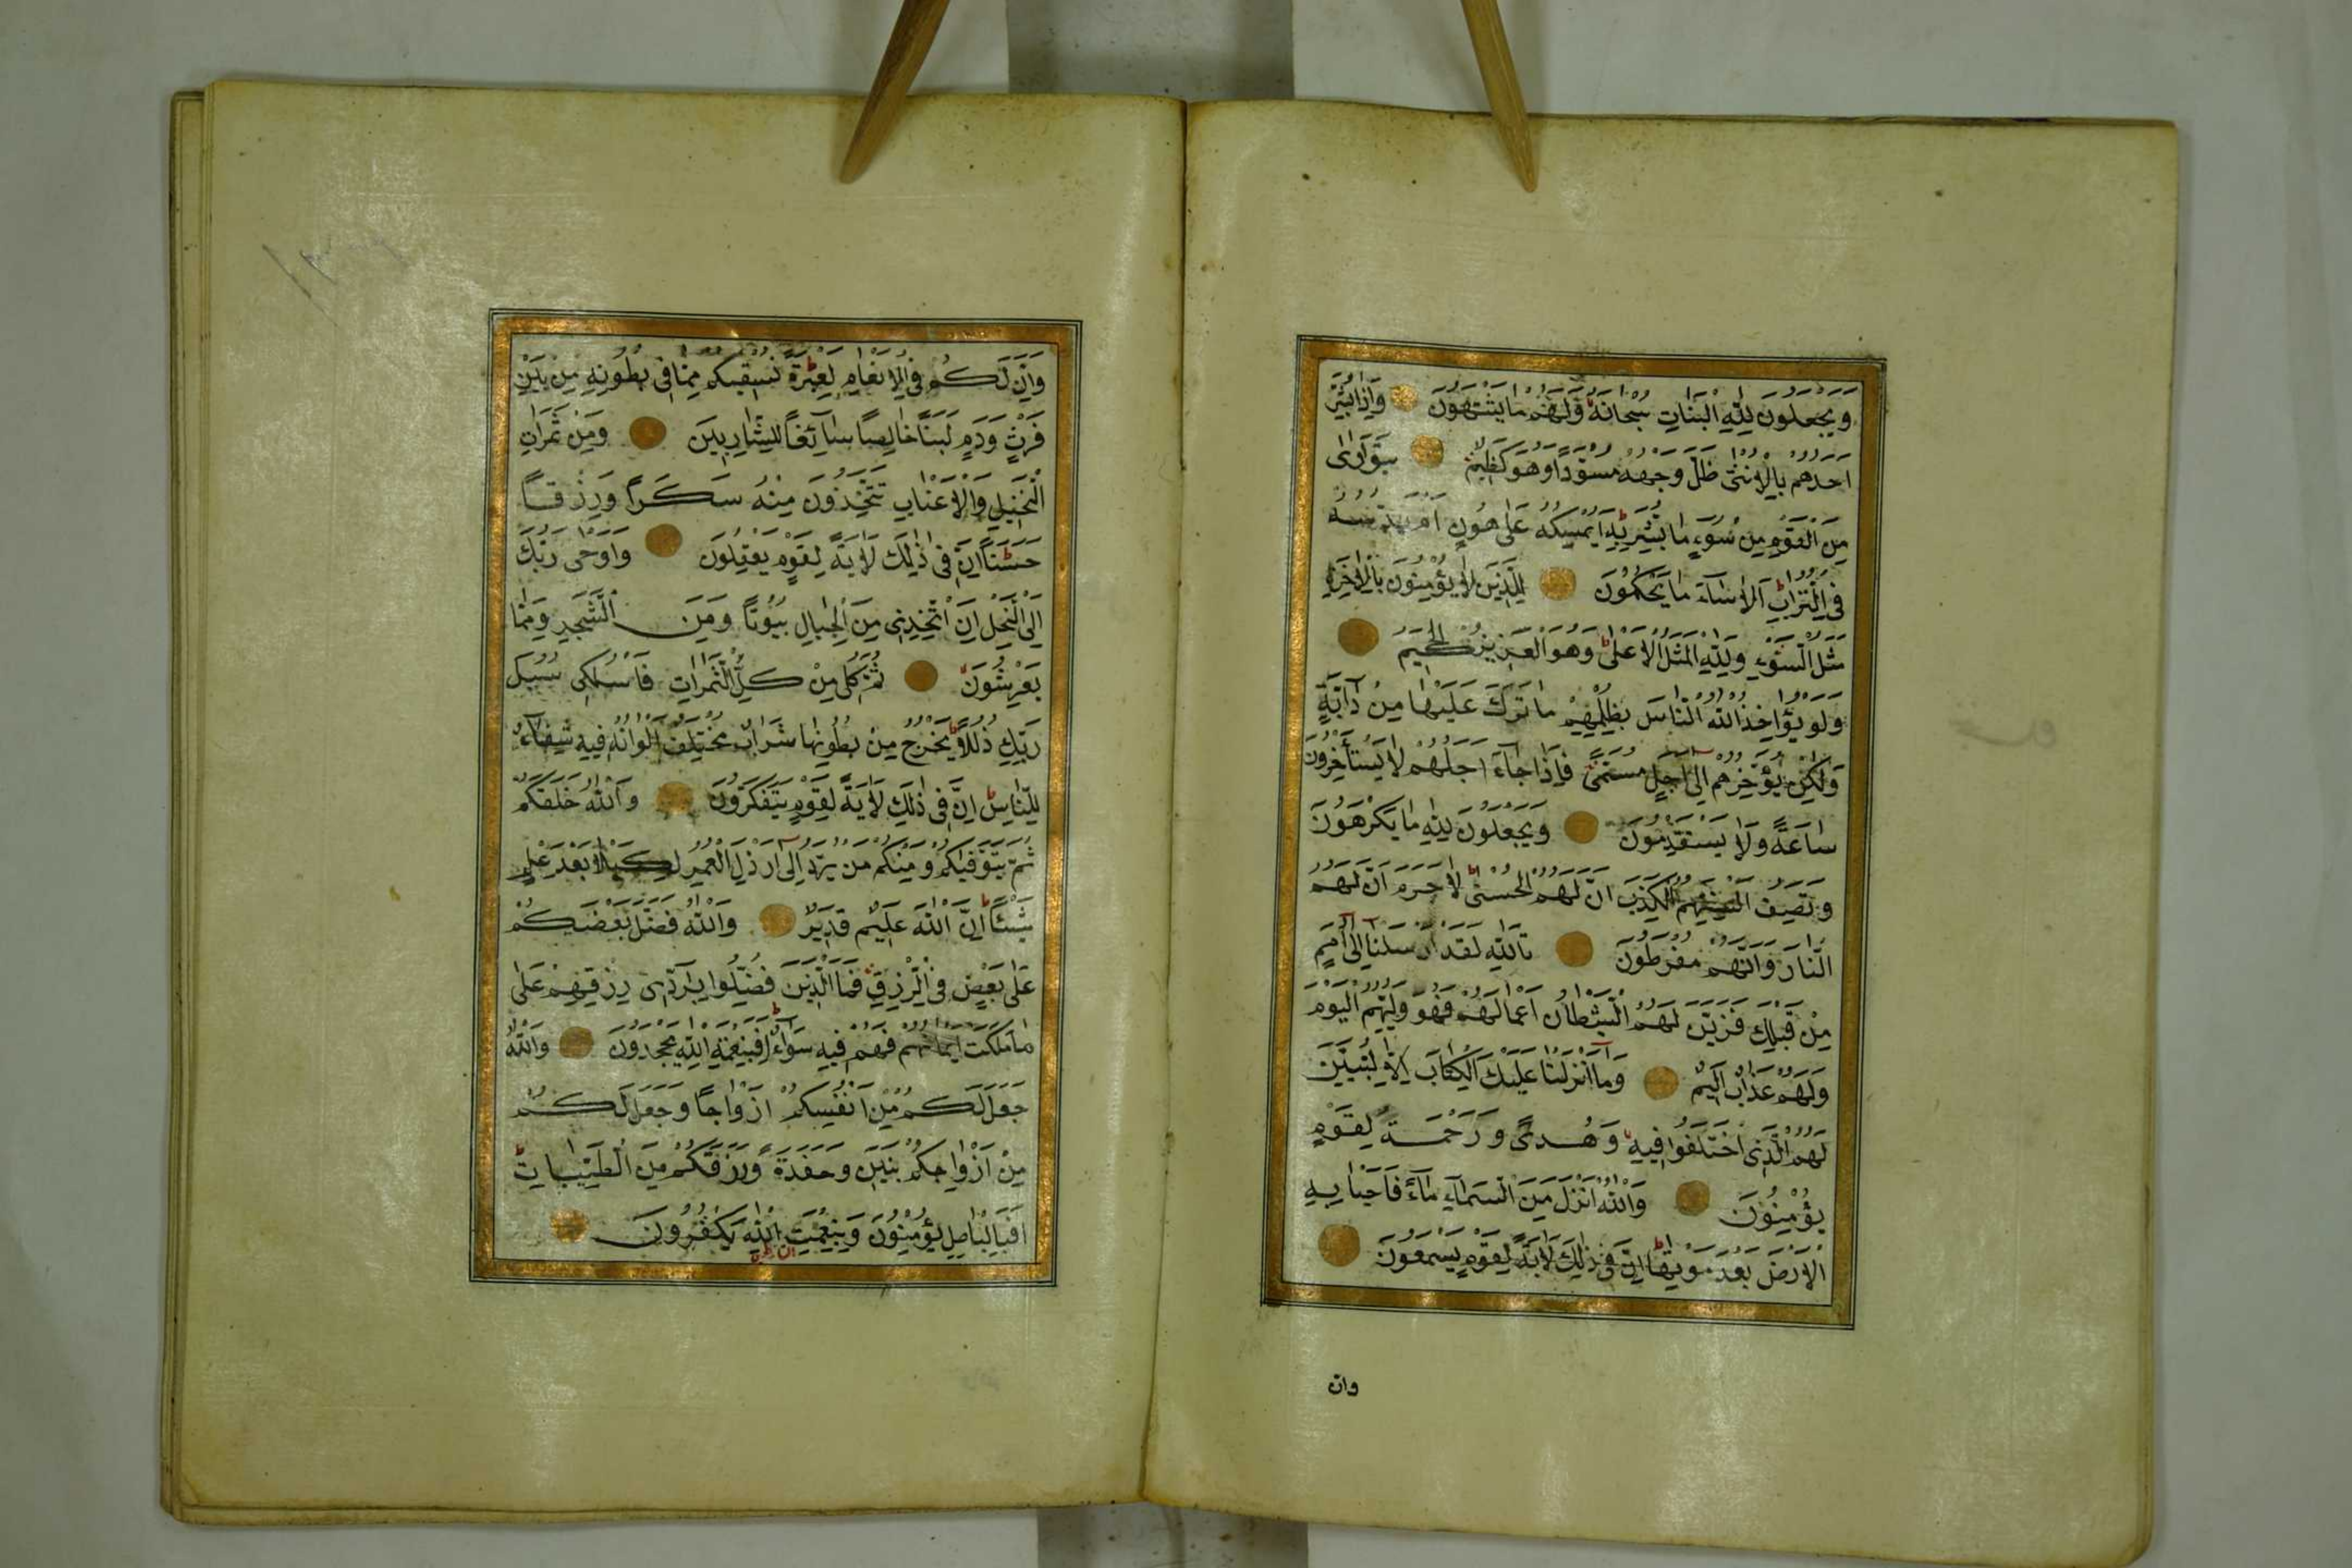 وَيَجْعَلُونَ لِلّٰهِ الْبَنَاتِ سُبْحَانَهُ وَلَهُمْ مَا يَشْتَهُونَ وَاِذَا بُشِّرَ
اَحَدُهُمْ بِالْاُنْثٰى ظَلَّ وَجْهُهُ مُسْوَدًّا وَهُوَ كَظِيمٌ يَتَوَارٰى
مِنَ الْقَوْمِ مِنْ سُوءِ مَا بُشِّرَ بِهِ اَيُمْسِكُهُ عَلٰى هُونٍ اَمْ يَدُسُّهُ
فِى التُّرَابِ اَلَا سَآءَ مَا يَحْكُمُونَ لِلَّذِينَ لَا يُؤْمِنُونَ بِالْاٰخِرَةِ
مَثَلُ السَّوْءِ وَلِلّٰهِ الْمَثَلُ الْاَعْلٰى وَهُوَ الْعَزِيزُ الْحَكِيمُ
وَلَوْ يُؤَاخِذُ اللّٰهُ النَّاسَ بِظُلْمِهِمْ مَا تَرَكَ عَلَيْهَا مِنْ دَآبَّةٍ
وَلٰكِنْ يُؤَخِّرُهُمْ اِلٰى اَجَلٍ مُسَمًّى فَاِذَا جَآءَ اَجَلُهُمْ لَا يَسْتَأْخِرُونَ
سَاعَةً وَلَا يَسْتَقْدِمُونَ وَيَجْعَلُونَ لِلّٰهِ مَا يَكْرَهُونَ
وَتَصِفُ اَلْسِنَتُهُمُ الْكَذِبَ اَنَّ لَهُمُ الْحُسْنٰى لَا جَرَمَ اَنَّ لَهُمُ
النَّارَ وَاَنَّهُمْ مُفْرَطُونَ تَاللّٰهِ لَقَدْ اَرْسَلْنَا اِلٰى اُمَمٍ
مِنْ قَبْلِكَ فَزَيَّنَ لَهُمُ الشَّيْطَانُ اَعْمَالَهُمْ فَهُوَ وَلِيُّهُمُ الْيَوْمَ
وَلَهُمْ عَذَابٌ اَلِيمٌ وَمَآ اَنْزَلْنَا عَلَيْكَ الْكِتَابَ اِلَّا لِتُبَيِّنَ
لَهُمُ الَّذِى اخْتَلَفُوا فِيهِ وَهُدًى وَرَحْمَةً لِقَوْمٍ
يُؤْمِنُونَ وَاللّٰهُ اَنْزَلَ مِنَ السَّمَآءِ مَآءً فَاَحْيَا بِهِ
الْاَرْضَ بَعْدَ مَوْتِهَا اِنَّ فِى ذٰلِكَ لَاٰيَةً لِقَوْمٍ يَسْمَعُونَ
وان
وَاِنَّ لَكُمْ فِى الْاَنْعَامِ لَعِبْرَةً نُسْقِيكُمْ مِمَّا فِى بُطُونِهِ مِنْ بَيْنِ
فَرْثٍ وَدَمٍ لَبَنًا خَالِصًا سَآئِغًا لِلشَّارِبِينَ وَمِنْ ثَمَرَاتِ
النَّخِيلِ وَالْاَعْنَابِ تَتَّخِذُونَ مِنْهُ سَكَرًا وَرِزْقًا
حَسَنًا اِنَّ فِى ذٰلِكَ لَاٰيَةً لِقَوْمٍ يَعْقِلُونَ وَاَوْحٰى رَبُّكَ
اِلَى النَّحْلِ اَنِ اتَّخِذِى مِنَ الْجِبَالِ بُيُوتًا وَمِنَ الشَّجَرِ وَمِمَّا
يَعْرِشُونَ ثُمَّ كُلِى مِنْ كُلِّ الثَّمَرَاتِ فَاسْلُكِى سُبُلَ
رَبِّكِ ذُلُلًا يَخْرُجُ مِنْ بُطُونِهَا شَرَابٌ مُخْتَلِفٌ اَلْوَانُهُ فِيهِ شِفَآءٌ
لِلنَّاسِ اِنَّ فِى ذٰلِكَ لَاٰيَةً لِقَوْمٍ يَتَفَكَّرُونَ وَاللّٰهُ خَلَقَكُمْ
ثُمَّ يَتَوَفّٰيكُمْ وَمِنْكُمْ مَنْ يُرَدُّ اِلٰى اَرْذَلِ الْعُمُرِ لِكَيْلَا يَعْلَمَ بَعْدَ عِلْمٍ
شَيْئًا اِنَّ اللّٰهَ عَلِيمٌ قَدِيرٌ وَاللّٰهُ فَضَّلَ بَعْضَكُمْ
عَلٰى بَعْضٍ فِى الرِّزْقِ فَمَا الَّذِينَ فُضِّلُوا بِرَآدِّى رِزْقِهِمْ عَلٰى
مَا مَلَكَتْ اَيْمَانُهُمْ فَهُمْ فِيهِ سَوَآءٌ اَفَبِنِعْمَةِ اللّٰهِ يَجْحَدُونَ وَاللّٰهُ
جَعَلَ لَكُمْ مِنْ اَنْفُسِكُمْ اَزْوَاجًا وَجَعَلَ لَكُمْ
مِنْ اَزْوَاجِكُمْ بَنِينَ وَحَفَدَةً وَرَزَقَكُمْ مِنَ الطَّيِّبَاتِ
اَفَبِالْبَاطِلِ يُؤْمِنُونَ وَبِنِعْمَتِ اللّٰهِ يَكْفُرُونَ